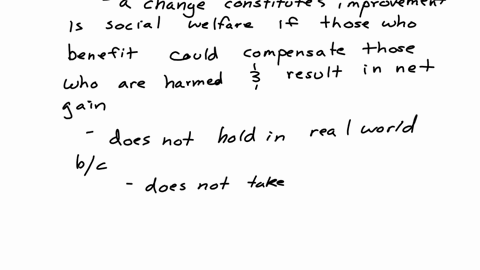 - a change constitutes improvement
is social welfare if those who
benefit could compensate those
who are harmed & result in net
gain
- does not hold in real world
b/c
- does not take